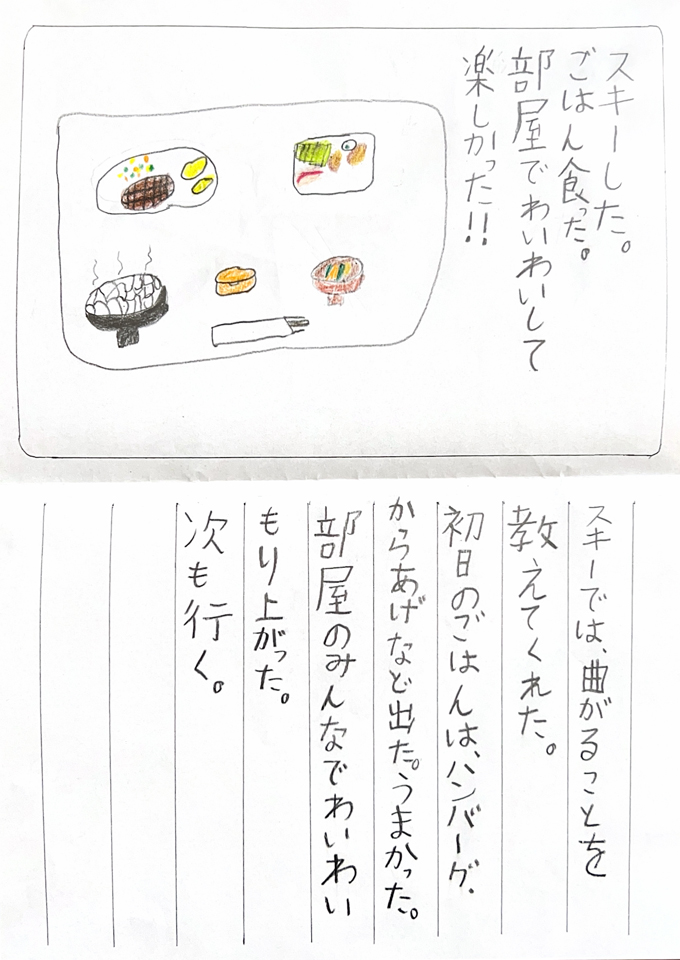 スキーした。
ごはん食った。
部屋でわいわいして
楽しかった!!
スキーでは、曲がることを
教えてくれた。
初日のごはんは、ハンバーグ.
からあげなど出た。うまかった。
部屋のみんなでわいわい
もり上がった。
次も行く。